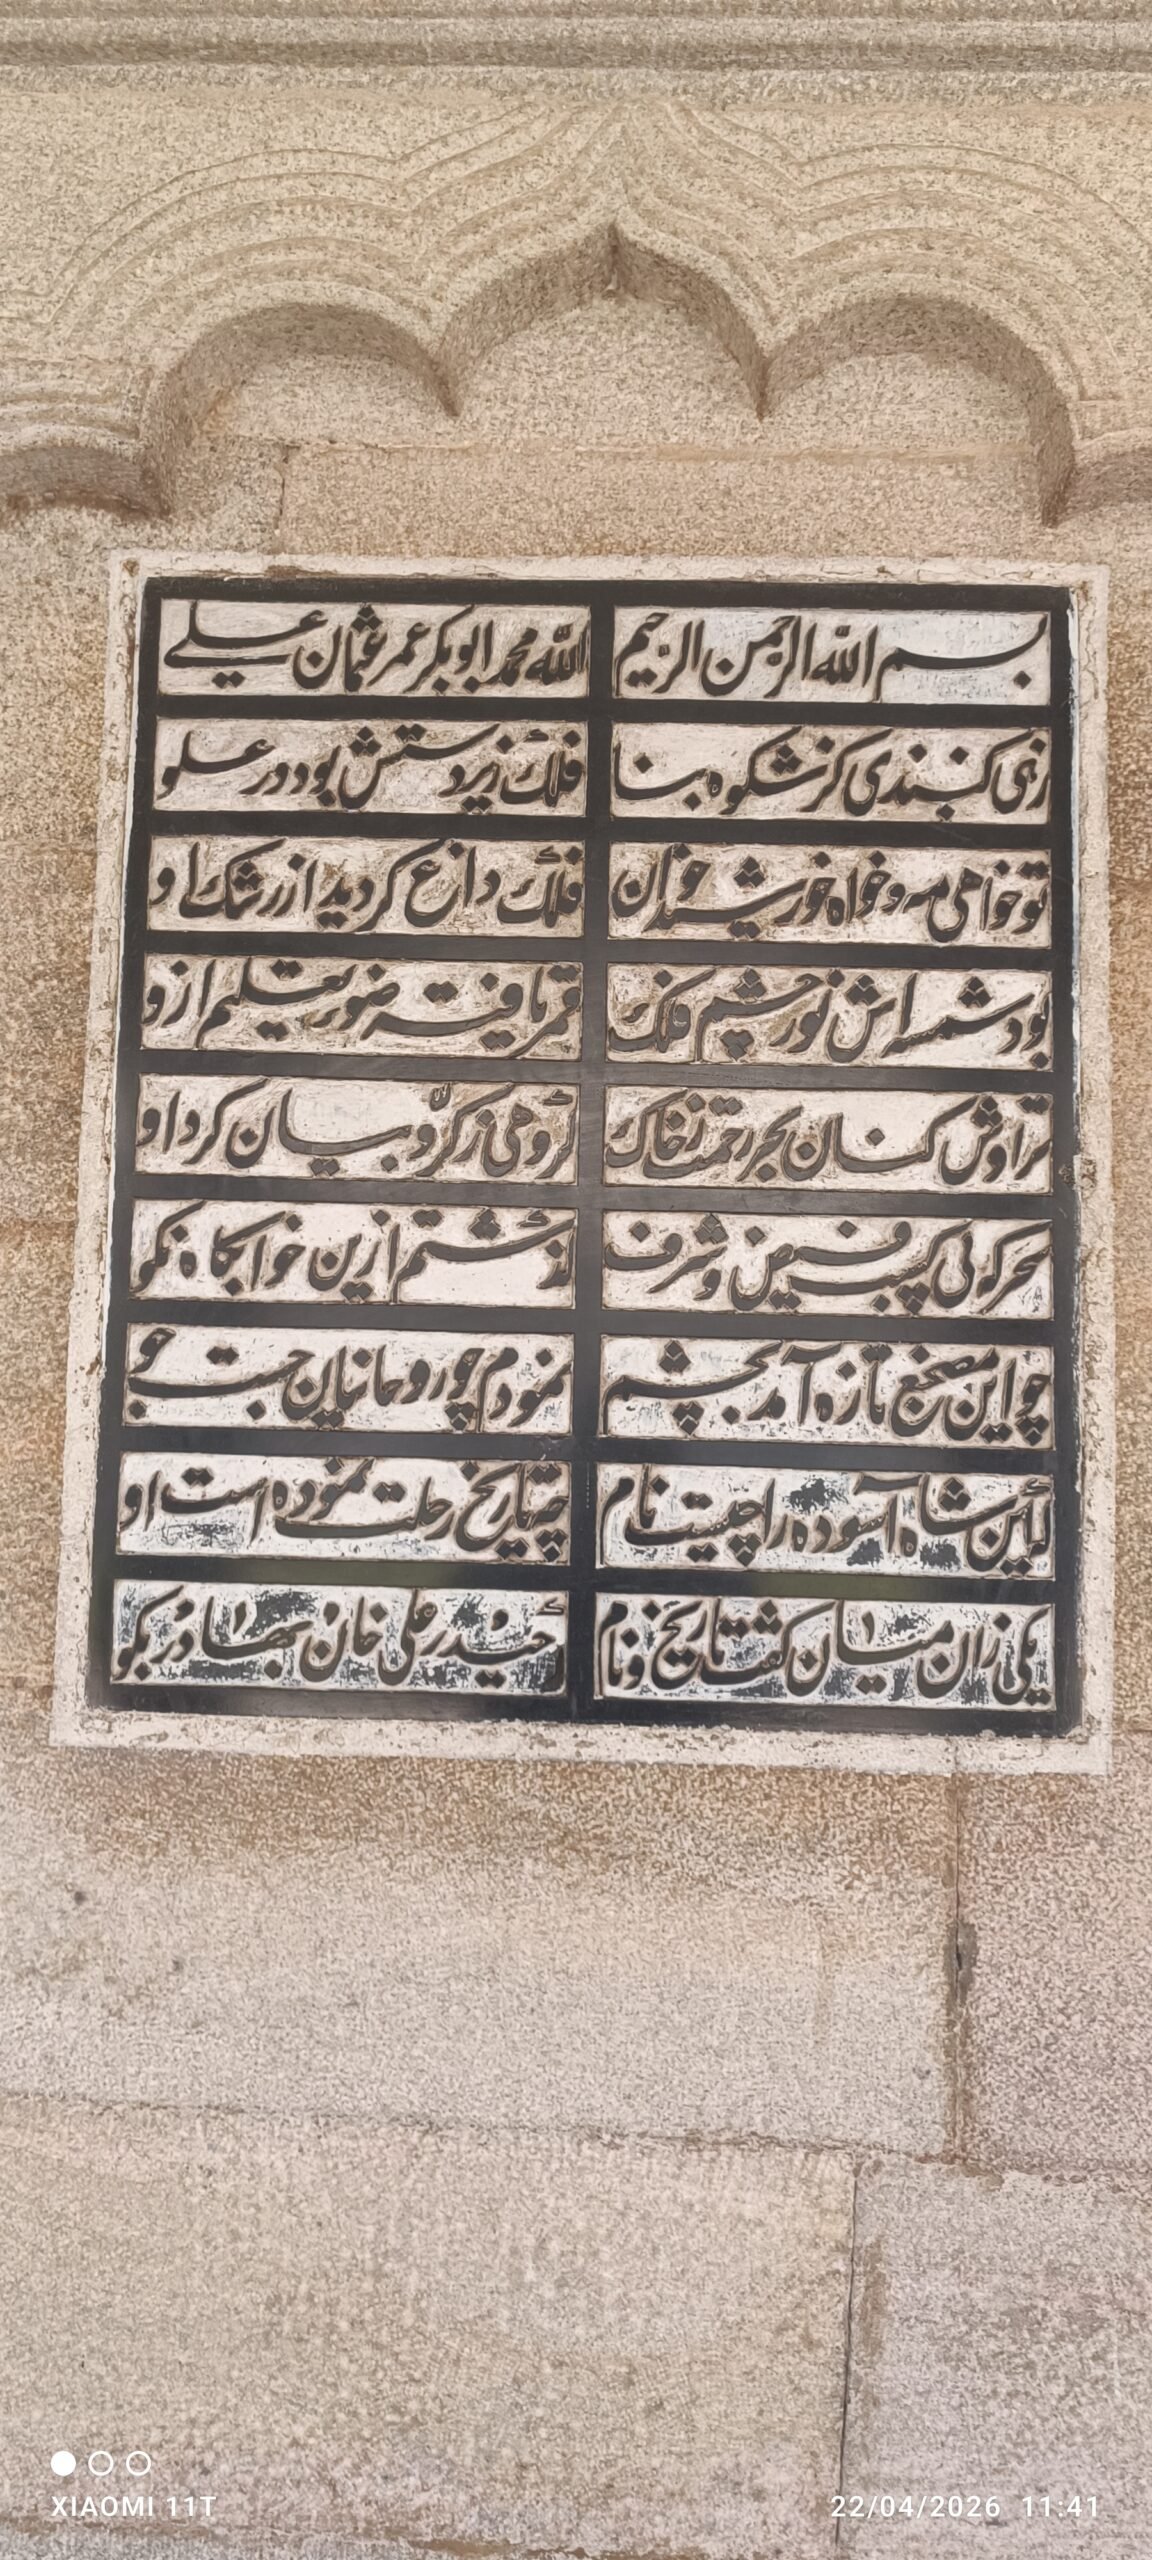 بسم الله الرحمن الرحیم الله محمد ابوبکر عمر عثمان علے
زهی کنبندی کز شکوه بنا فلک زیر دستش بود در علو
تو خواهی مه و خواه خورشید خوان فلک داغ کردید از رشک او
بود شمسه اش نور چشم فلک قمر یافته ضو ز تعلیم ازو
تراوش کنان بحر رحمت ز خاک گروهی ز کرّوبیان کرد او
سحر کوئی کسب فیض و شرف گذشتم ازین خوابکاه نکو
چو این مضجع تازه آمد بچشم نمودم چو روحانیان جست جو
که این شاه آسوده را چیست نام چه تاریخ رحلت نموده است او
یکی زان میان کفت تاریخ و نام که حیدر علی خان بهادر بکو
XIAOMI 11T 22/04/2026 11:41